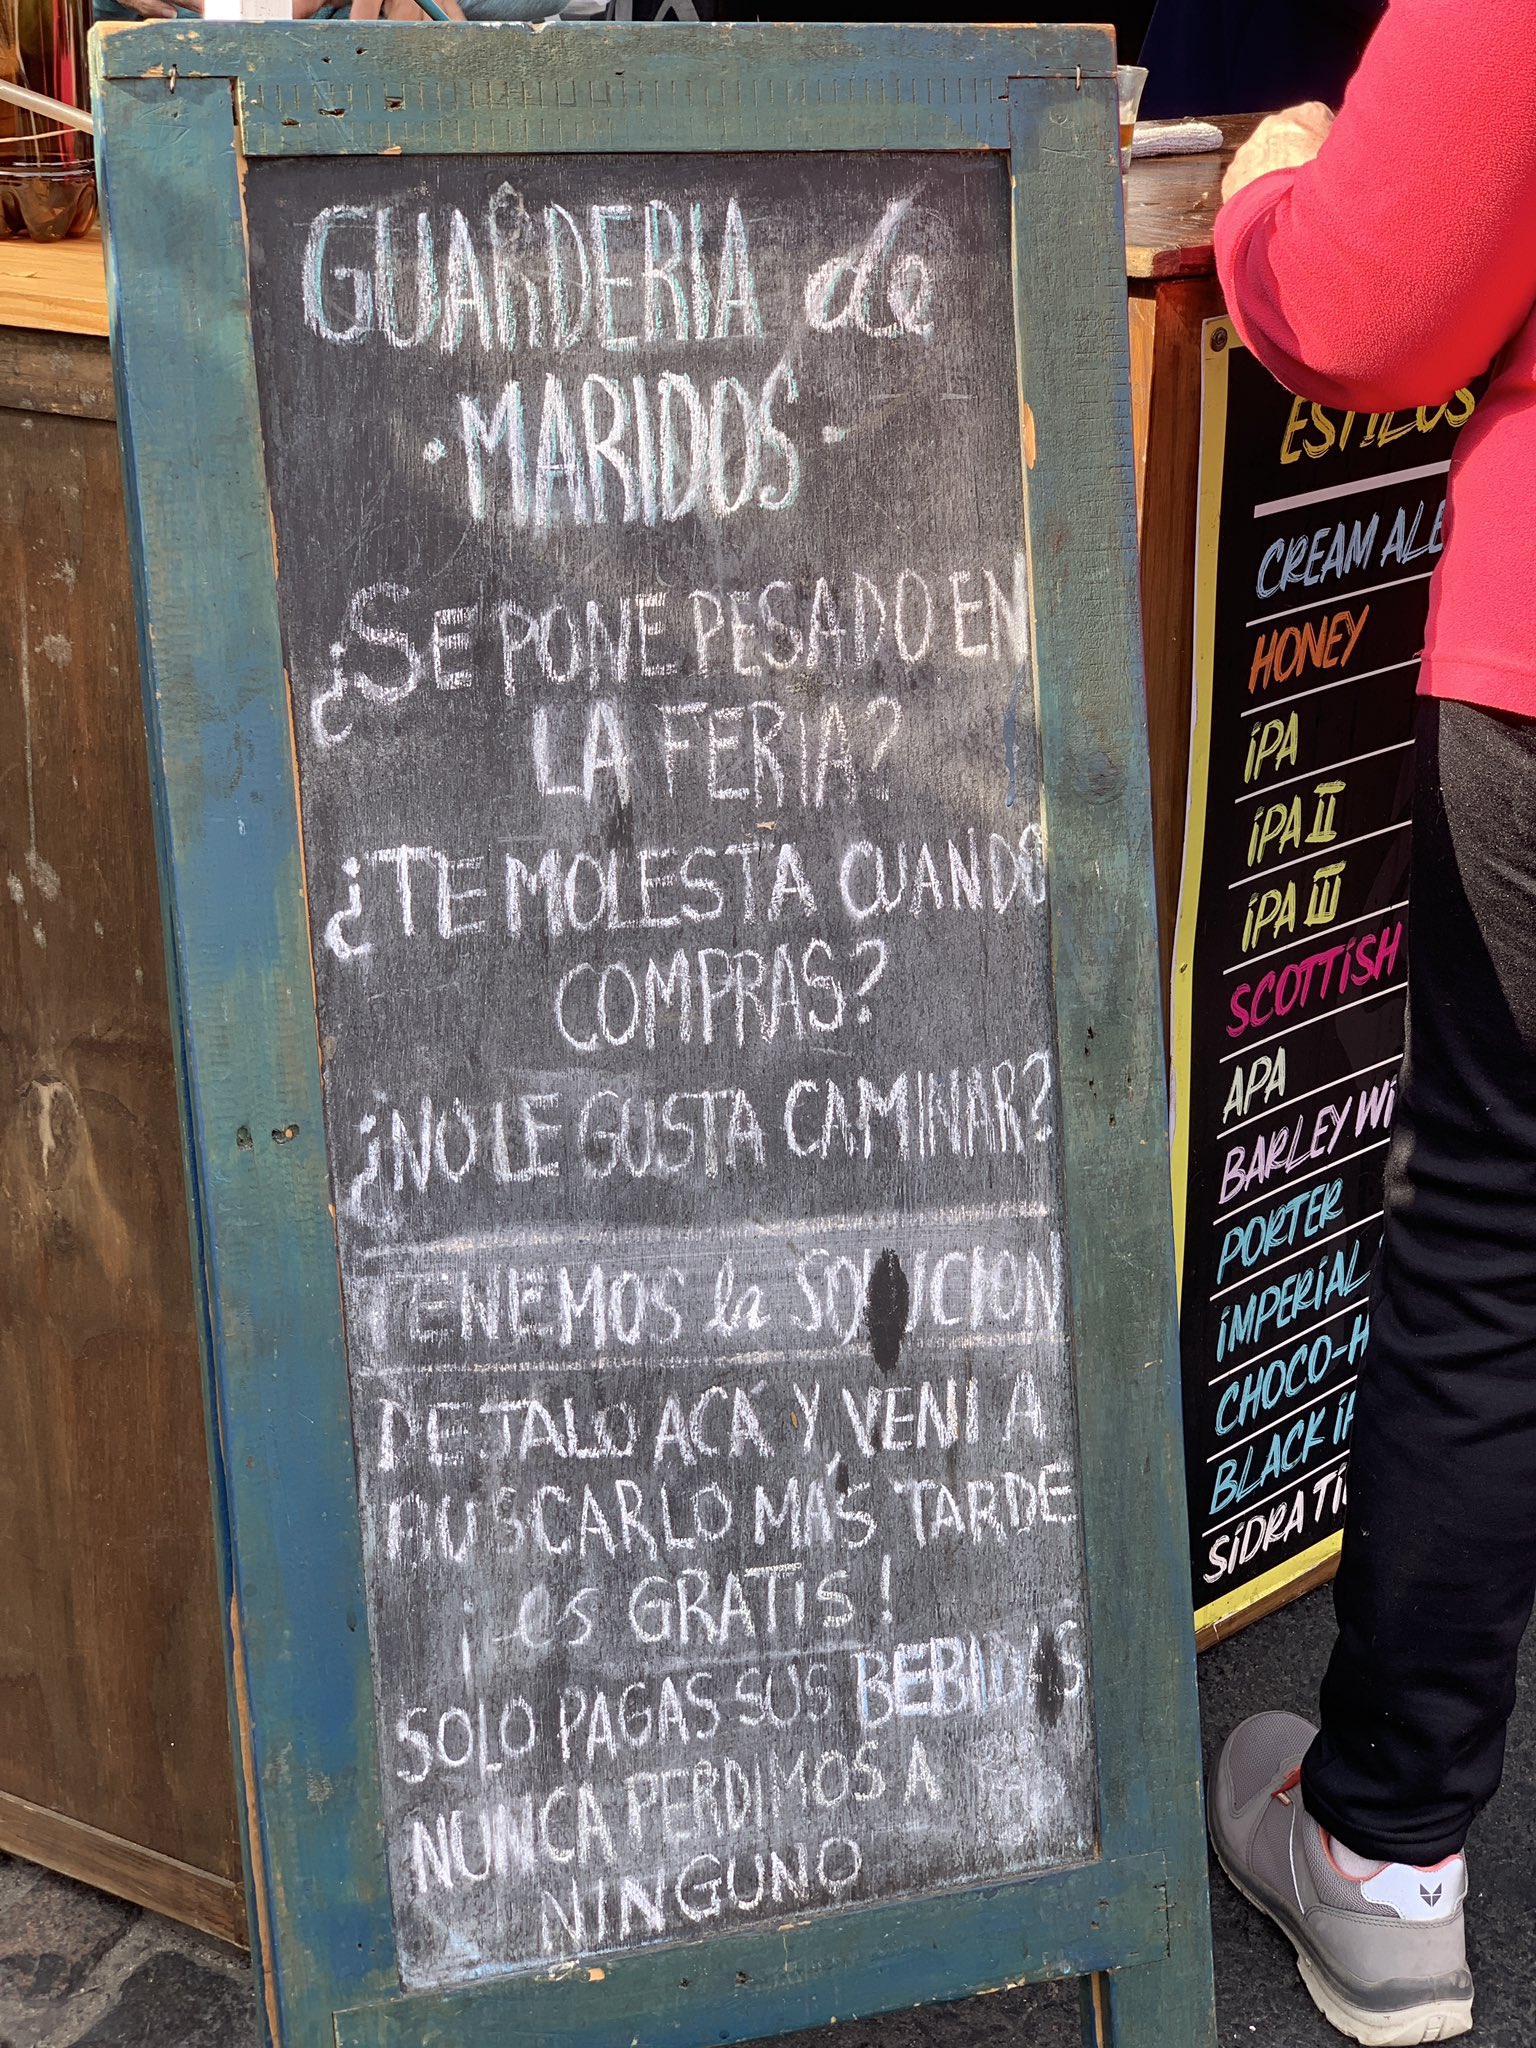 GUARDERIA de
· MARIDOS ·
¿SE PONE PESADO EN
LA FERIA?
¿TE MOLESTA CUANDO
COMPRAS?
¿NO LE GUSTA CAMINAR?
TENEMOS la SOLUCION
DEJALO ACÁ Y VENI A
BUSCARLO MÁS TARDE
¡ es GRATIS!
SOLO PAGAS SUS BEBIDAS
NUNCA PERDIMOS A
NINGUNO
ESTILOS
CREAM ALE
HONEY
IPA
IPA II
IPA III
SCOTTISH
APA
BARLEY WI
PORTER
IMPERIAL
CHOCO-H
BLACK
SIDRA